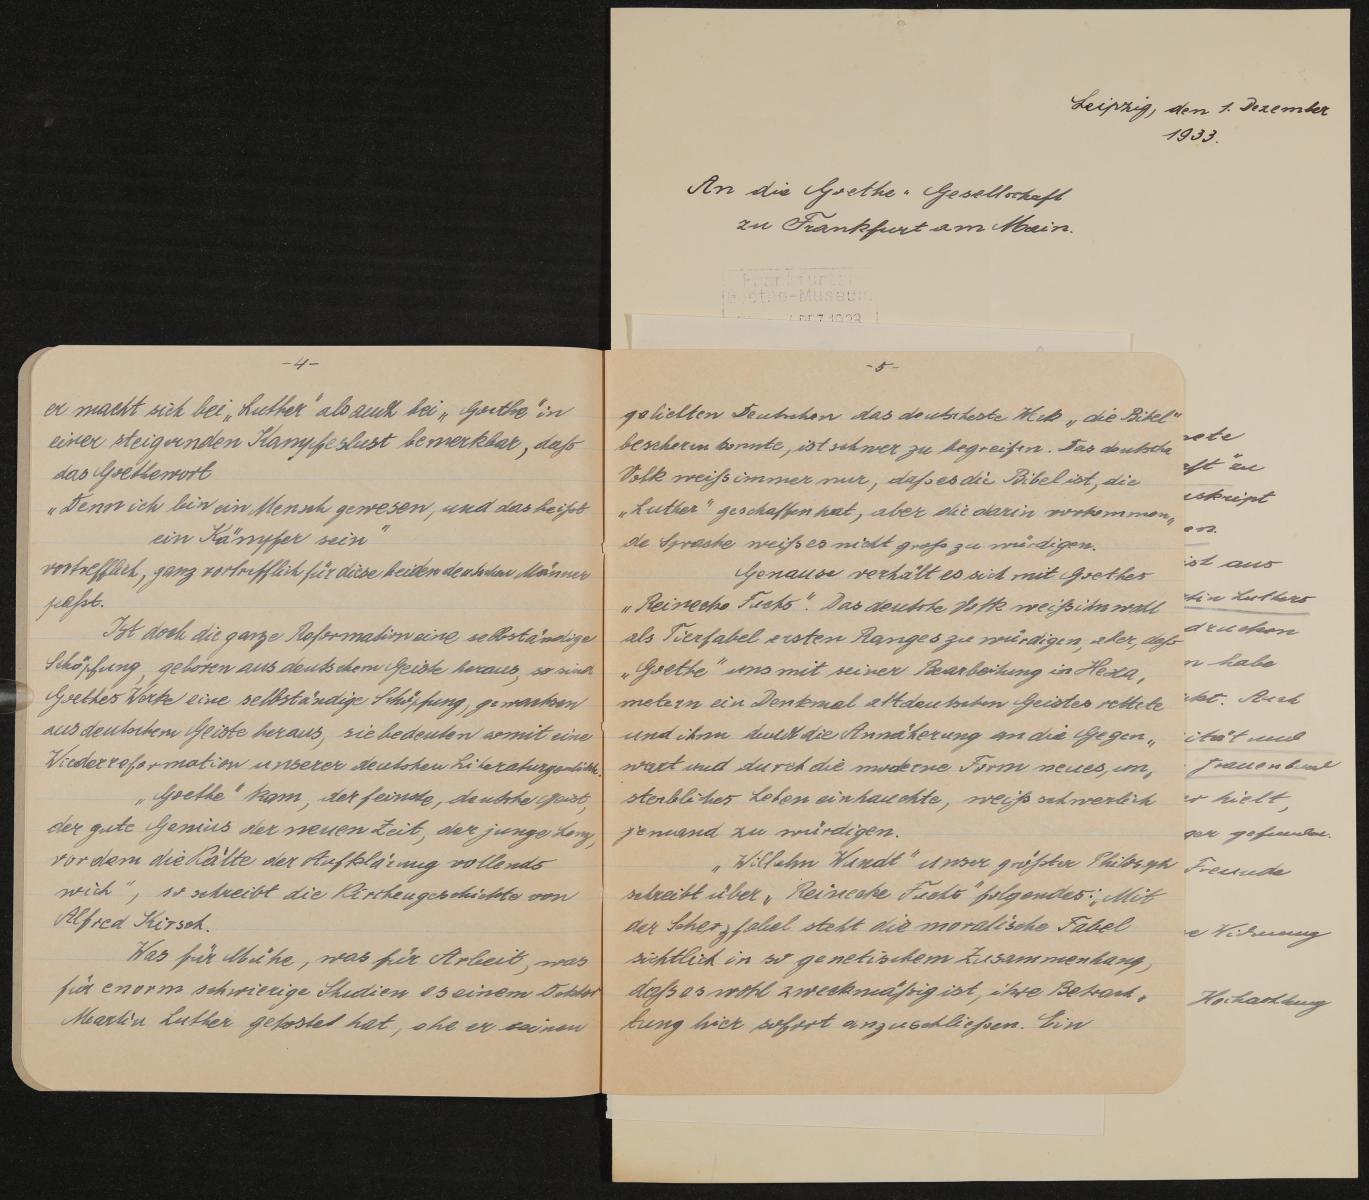 Leipzig, den 1. Dezember
1933.
An die Goethe-Gesellschaft
zu Frankfurt am Main.
Frankfurter
Goethe-Museum
DEZ 1933
-4-
er macht sich bei „Luther" als auch bei „Goethe" in
einer steigernden Kampfeslust bemerkbar, daß
das Goethewort
„Denn ich bin ein Mensch gewesen, und das heißt
ein Kämpfer sein"
vortrefflich, ganz vortrefflich für diese beiden deutschen Männer
paßt.
Ist doch die ganze Reformation eine selbständige
Schöpfung, geboren aus deutschem Geiste heraus, so sind
Goethes Werke eine selbständige Schöpfung, gewachsen
aus deutschem Geiste heraus, sie bedeuten somit eine
Wiederreformation unserer deutschen Literaturgeschichte.
„Goethe" kam, der feinste, deutsche Geist,
der gute Genius der neuen Zeit, der junge Lenz,
vor dem die Kälte der Aufklärung vollends
wich", so schreibt die Kirchengeschichte von
Alfred Kirsch.
Was für Mühe, was für Arbeit, was
für enorm schwierige Studien es einem Doktor
Martin Luther gekostet hat, ehe er seinen
-5-
geliebten Deutschen das deutscheste Werk „die Bibel"
bescheren konnte, ist schwer zu begreifen. Das deutsche
Volk weiß immer nur, daß es die Bibel ist, die
„Luther" geschaffen hat, aber die darin vorkommen„
de Sprache weiß es nicht groß zu würdigen.
Genauso verhält es sich mit Goethes
„Reinecke Fuchs". Das deutsche Volk weiß ihn wohl
als Tierfabel ersten Ranges zu würdigen, aber, daß
„Goethe" uns mit seiner Bearbeitung in Hexa„
metern ein Denkmal altdeutschen Geistes rettete
und ihm durch die Annäherung an die Gegen„
wart und durch die moderne Form neues, un„
sterbliches Leben einhauchte, weiß schwerlich
jemand zu würdigen.
„Wilhelm Wundt" unser größter Philosoph
schreibt über „Reinecke Fuchs" folgendes: „Mit
der Scherzfabel steht die moralische Fabel
sichtlich in so genetischem Zusammenhang,
daß es wohl zweckmäßig ist, ihre Betrach„
tung hier sofort anzuschließen. Ein
nete
aft" zu
uskript
en.
ist aus
tin Luthers
drucken
n habe
kt. Auch
ität und
Frauenbund
er hielt,
ger gefunden.
Freunde
e Widmung
Hochachtung